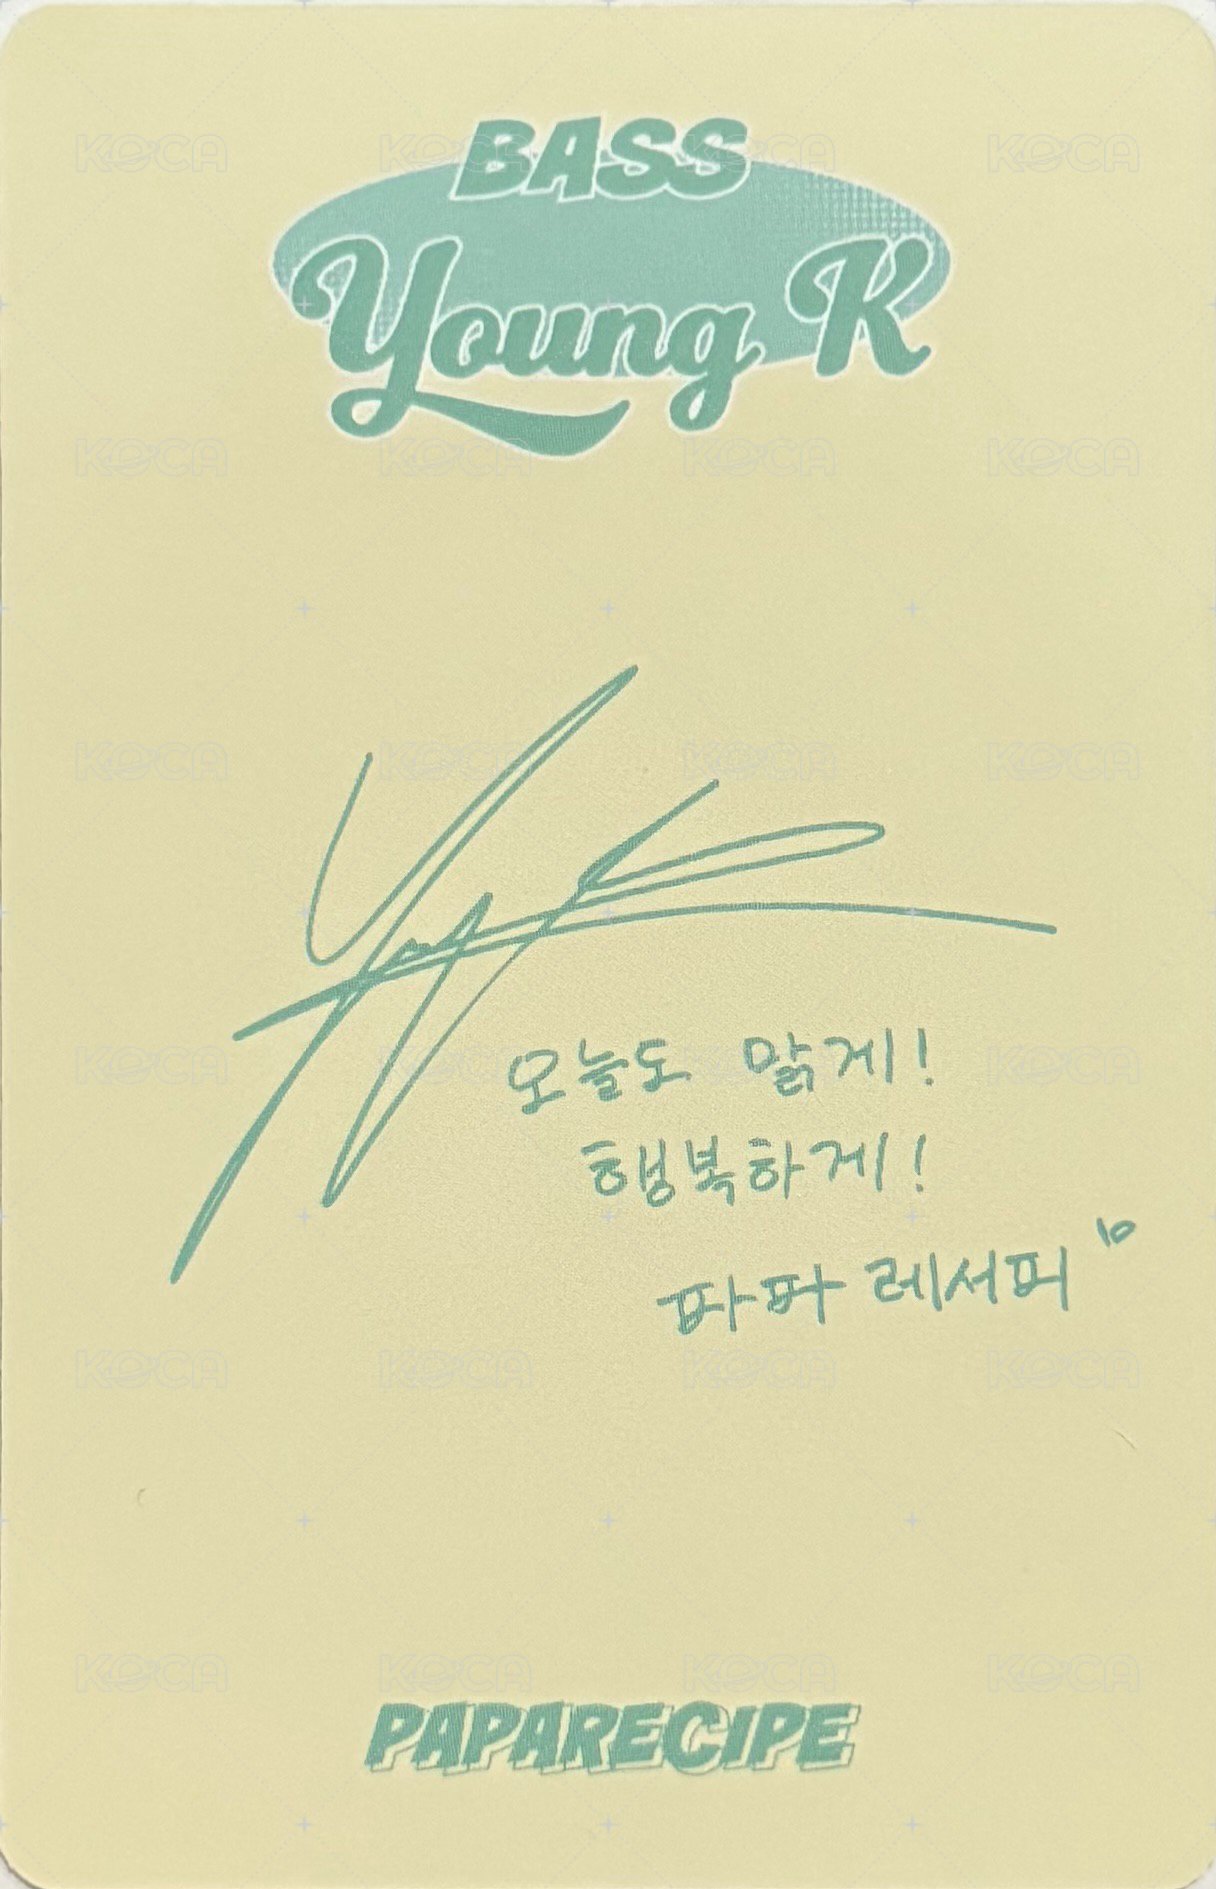 BASS
Young K
오늘도 맑게!
행복하게!
파파레서피 10
PAPARECIPE